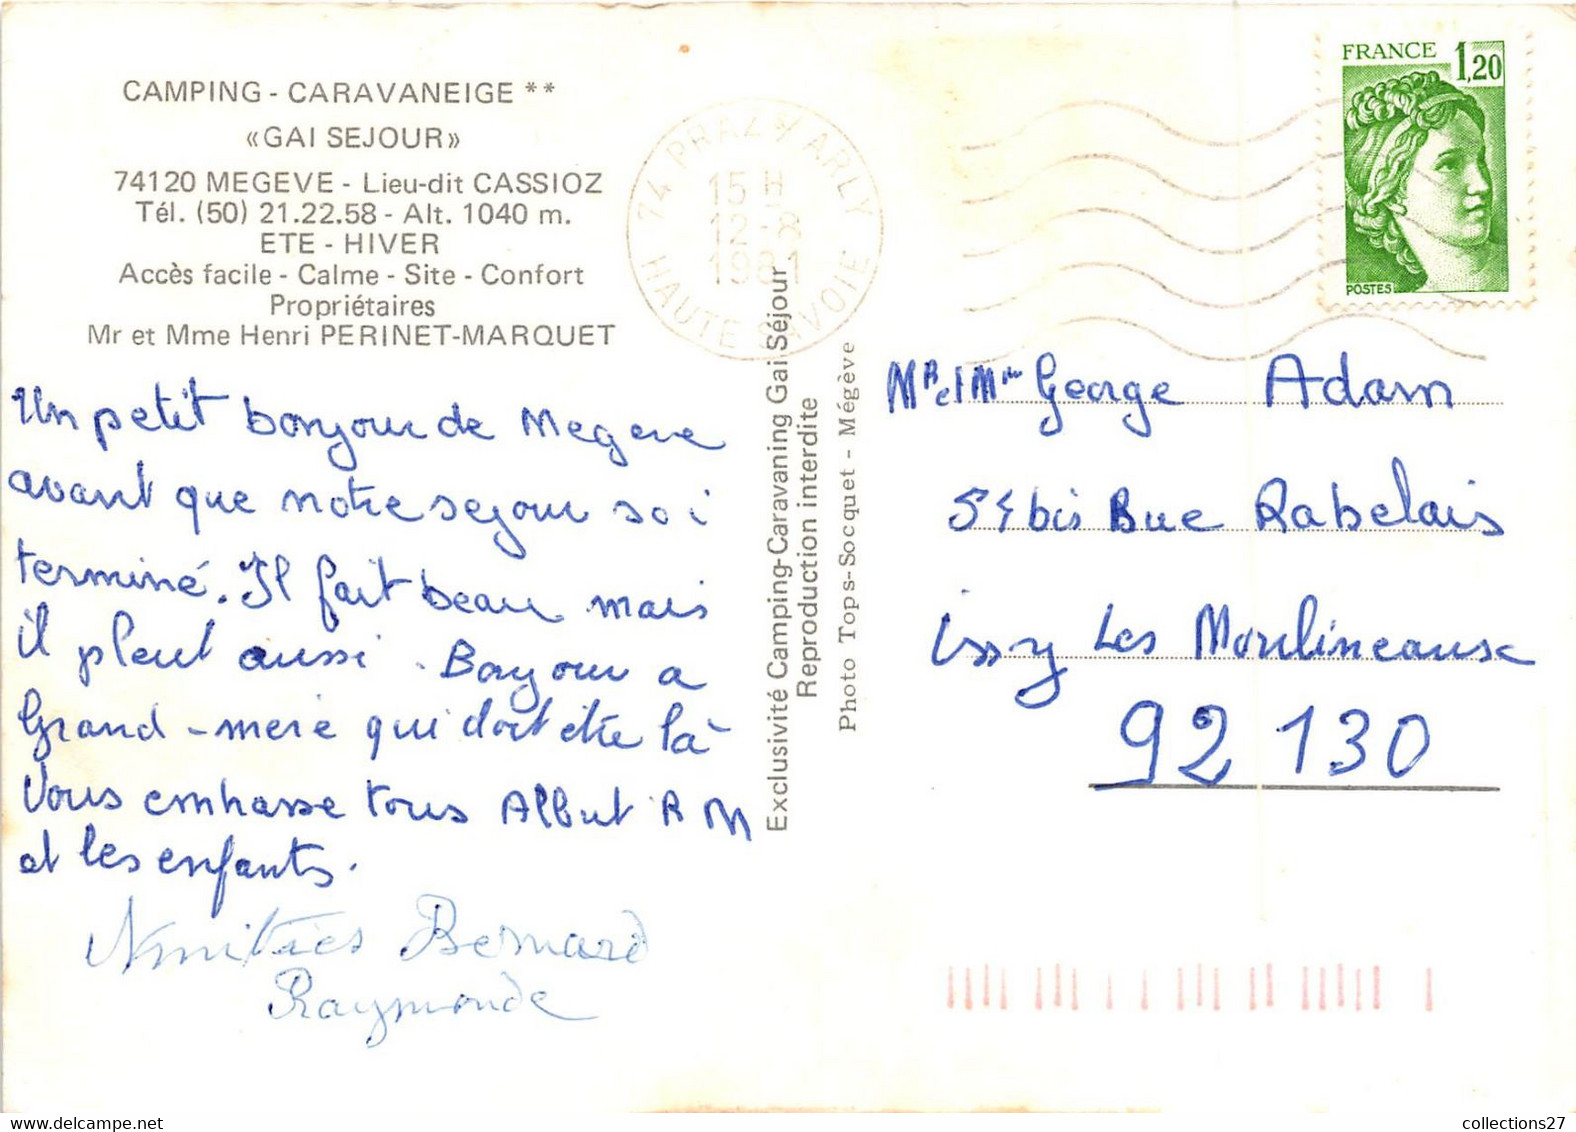 CAMPING - CARAVANEIGE **
«GAI SEJOUR»
74120 MEGEVE - Lieu-dit CASSIOZ
Tél. (50) 21.22.58 - Alt. 1040 m.
ETE - HIVER
Accès facile - Calme - Site - Confort
Propriétaires
Mr et Mme Henri PERINET-MARQUET
Un petit bonjour de Megeve
avant que notre sejour soi
terminé. Il fait beau mais
il pleut aussi. Bonjour a
Grand-mere qui doit etre là
Vous embrasse tous Albert R M
et les enfants.
Amitiés Bernard
Raymonde
74 PRAZ S/ ARLY
15 H
12-8
1981
HAUTE SAVOIE
Exclusivité Camping-Caravaning Gai Séjour
Reproduction interdite
Photo Tops-Socquet - Mégève
FRANCE 1,20
POSTES
Mr et Mme George Adam
54 bis Rue Rabelais
issy Les Moulineaux
92 130
collections27